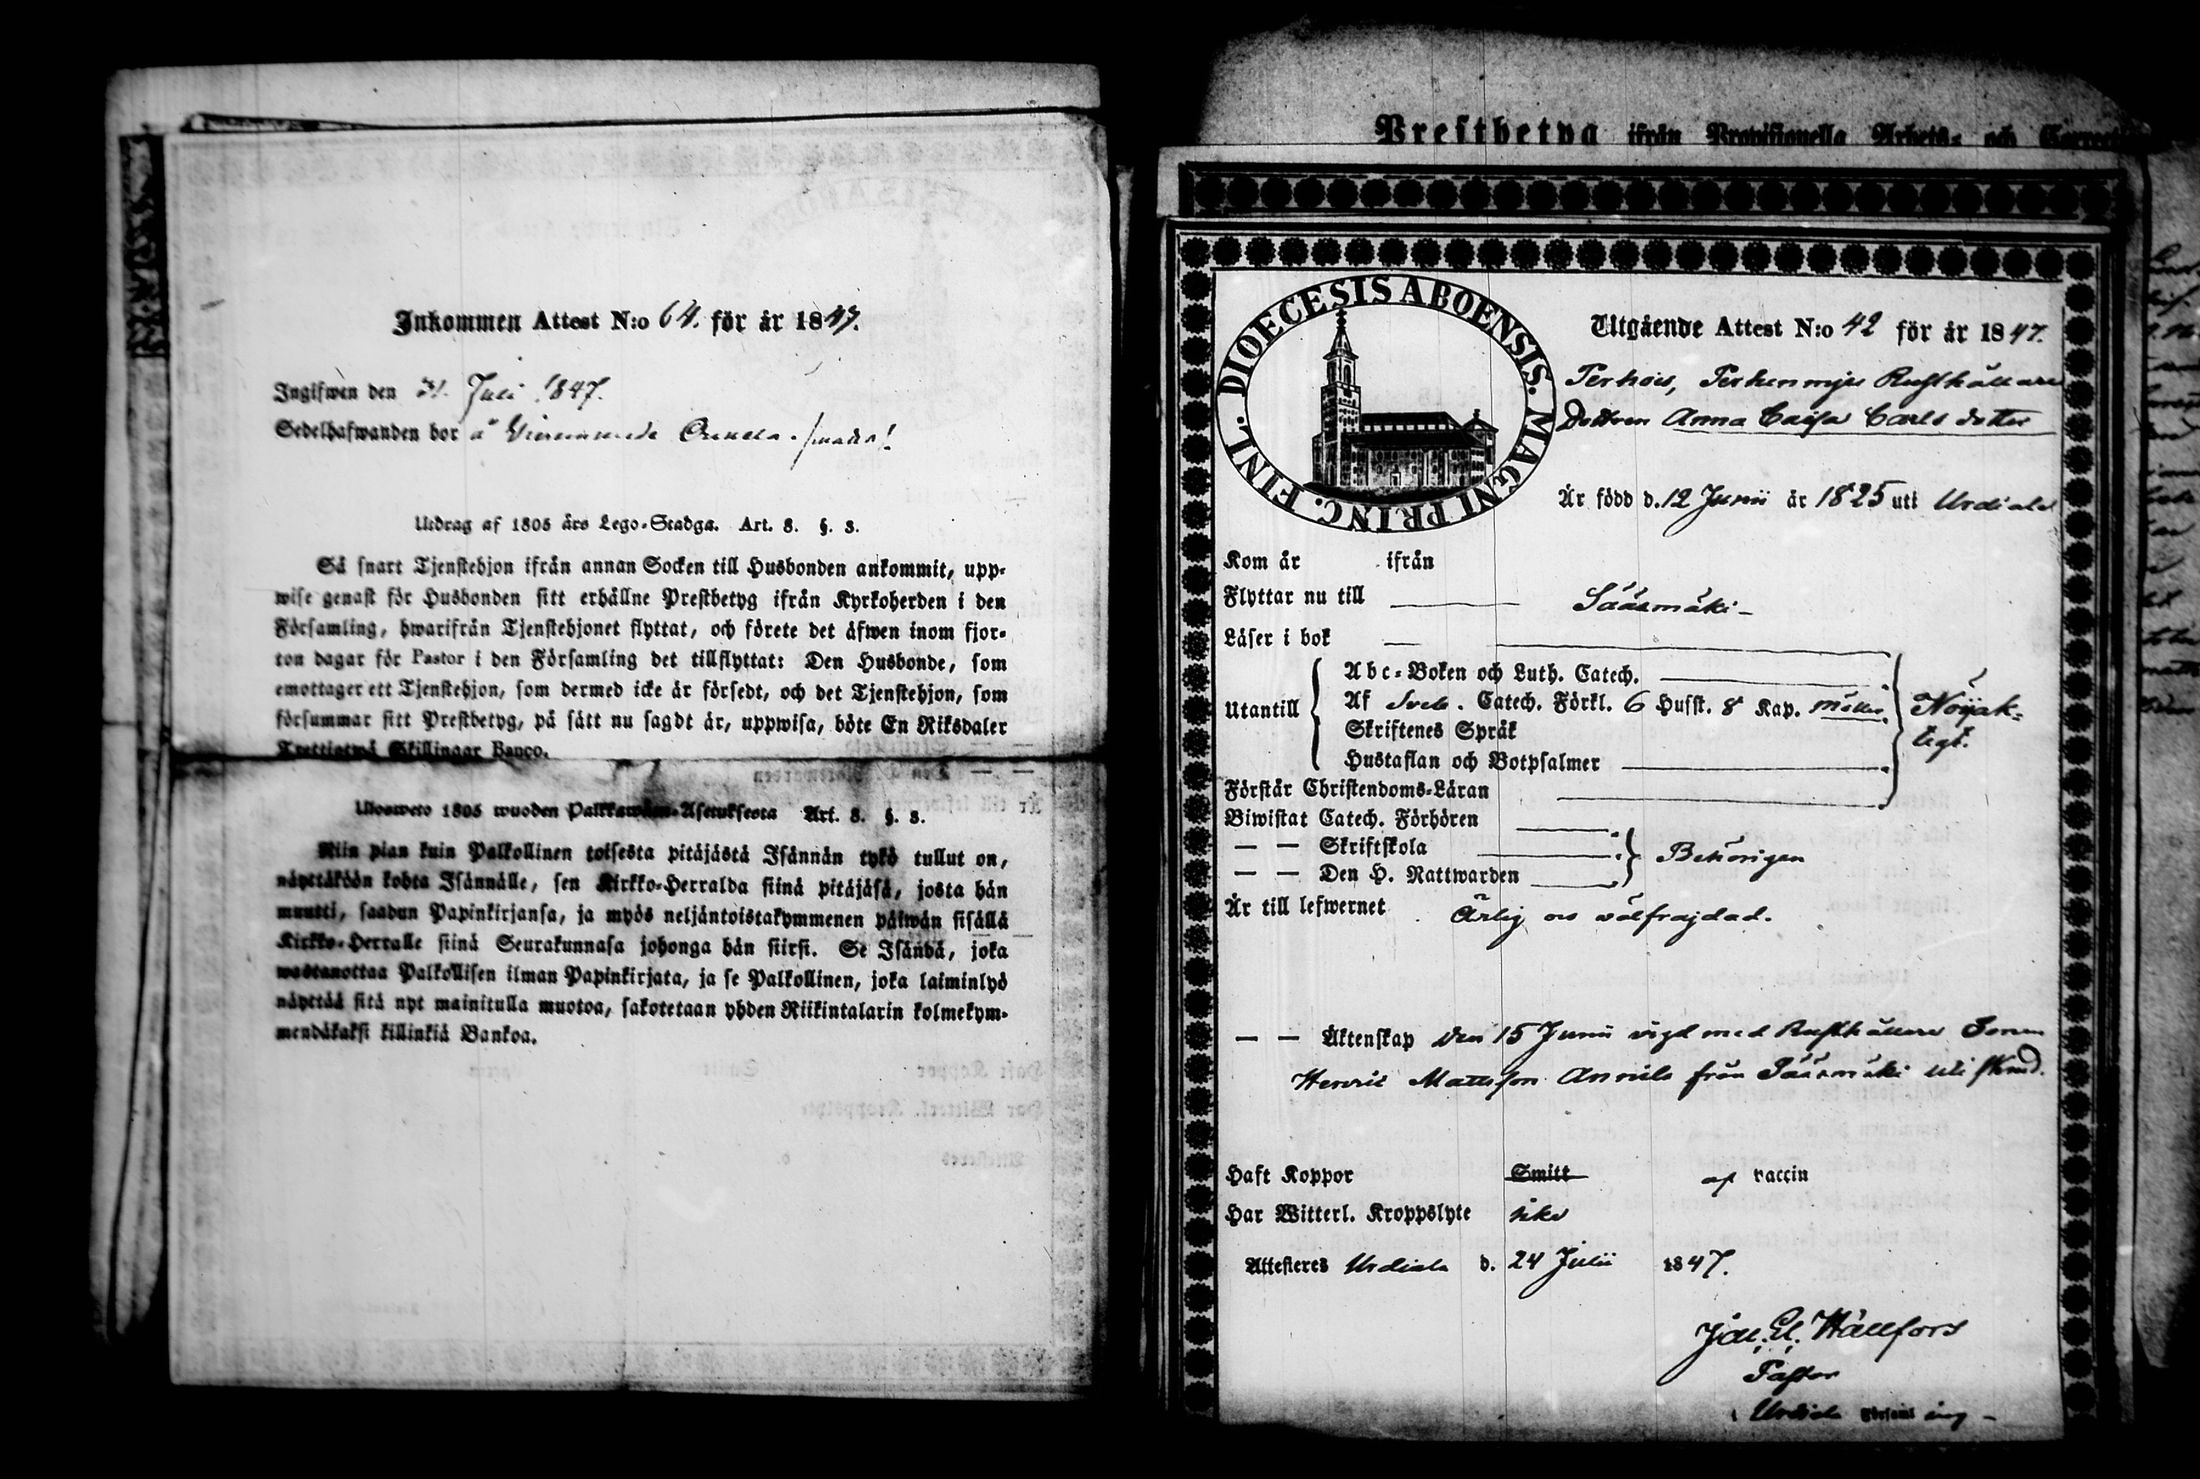 Inkommen Attest N:o 64. för år 1847.
Ingifwen den 31. Juli 1847.
Sedelhafwanden bor å
Utdrag af 1805 års Lego-Stadga. Art. 8. §. 3.
Så snart Tjenstehjon ifrån annan Socken till Husbonden ankommit, upp-
wise genast för Husbonden sitt erhållne Prestbetyg ifrån Kyrkoherden i den
Församling, hwarifrån Tjenstehjonet flyttat, och förete det äfwen inom fjor-
ton dagar för Pastor i den Församling det tillflyttat: Den Husbonde, som
emottager ett Tjenstehjon, som dermed icke är försedt, och det Tjenstehjon, som
försummar sitt Prestbetyg, på sätt nu sagdt är, uppwisa, böte En Riksdaler
Trettiotwå Skillingar Banco.
Ulosweto 1805 wuoden Palkkawäen-Asetuksesta Art. 8. §. 3.
Niin pian kuin Palkollinen toisesta pitäjästä Isännän tykö tullut on,
näyttäköön kohta Isännälle, sen Kirkko-Herralda siinä pitäjäsä, josta hän
muutti, saadun Papinkirjansa, ja myös neljäntoistakymmenen päiwän sisällä
Kirkko-Herralle siinä Seurakunnasa johonga hän siirsi. Se Isändä, joka
wastanottaa Palkollisen ilman Papinkirjata, ja se Palkollinen, joka laiminlyö
näyttää sitä nyt mainitulla muotoa, sakotetaan yhden Riikintalarin kolmekym-
mendäkaksi killinkiä Bankoa.
Prestbetyg ifrån Provisionella Arbets- och
DIOECESIS ABOENSIS. MAGNI PRINC. FINL.
Utgående Attest N:o 42 för år 1847.
Rusthållare
Dottren Anna Caisa Carls dotter
Är född d. 12 Junii år 1825 uti Urdiala
Kom år ifrån
Flyttar nu till Sääxmäki
Läser i bok
Abc-Boken och Luth. Catech.
Utantill Af Sveb. Catech. Förkl. 6 Husst. 8 Kap. Nöijak-
Skriftenes Språk ligt.
Hustaflan och Botpsalmer
Förstår Christendoms-Läran
Biwistat Catech. Förhören
— — Skriftskola Behörigen
— — Den H. Nattwarden
Är till lefwernet Ärlig och välfrajdad.
— — Äktenskap den 15 Junii vigd med Rusthållare Sonen
Henric Mattsson Annila från Sääxmäki
Haft Koppor Smitt af vaccin
Har Witterl. Kroppslyte icke
Attesteres Urdiala d. 24 Julii 1847.
Hällfors
Pastor
Urdiala Församling